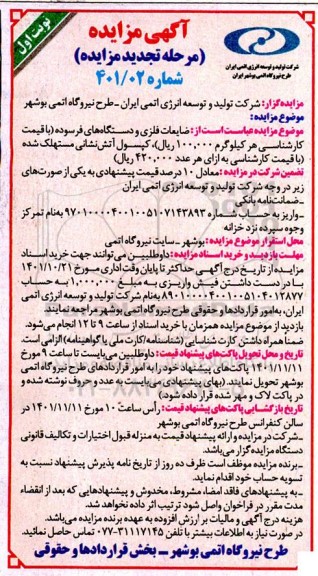 نوبت اول
آگهی مزایده
(مرحله تجدید مزایده)
شماره ۴۰۱/۰۲
شرکت تولید و توسعه انرژی اتمی ایران
طرح نیروگاه اتمی بوشهر ایران
مزایده‌گزار: شرکت تولید و توسعه انرژی اتمی ایران ـ طرح نیروگاه اتمی بوشهر
موضوع مزایده:
موضوع مزایده عباست است از: ضایعات فلزی و دستگاه‌های فرسوده (با قیمت
کارشناسی هر کیلوگرم ۱۰۰,۰۰۰ ریال)، کپسول آتش‌نشانی مستهلک شده
(با قیمت کارشناسی به ازای هر عدد ۴۲۰,۰۰۰ ریال)
تضمین شرکت در مزایده: معادل ۱۰ درصد قیمت پیشنهادی به یکی از صورت‌های
زیر در وجه شرکت تولید و توسعه انرژی اتمی ایران
ـ ضمانت‌نامه بانکی
ـ واریز به حساب شماره به‌نام تمرکز
وجوه سپرده نزد خزانه
محل استقرار موضوع مزایده: بوشهر ـ سایت نیروگاه اتمی
مهلت بازدید و خرید اسناد مزایده: داوطلبین می‌توانند جهت خرید اسناد
مزایده از تاریخ درج آگهی حداکثر تا پایان وقت اداری مورخ ۱۴۰۱/۱۰/۲۱
با در دست داشتن فیش واریزی به مبلغ ۱,۰۰۰,۰۰۰ به حساب
به‌نام شرکت تولید و توسعه انرژی اتمی
ایران، به امور قراردادها و حقوقی طرح نیروگاه اتمی بوشهر مراجعه نمایند.
بازدید از موضوع مزایده همزمان با خرید اسناد از ساعت ۹ تا ۱۲ انجام می‌شود.
ضمنا همراه داشتن کارت شناسایی (شناسنامه/کارت ملی یا گواهینامه) الزامی است.
تاریخ و محل تحویل پاکت‌های پیشنهاد قیمت: داوطلبین می‌بایست تا ساعت ۹ مورخ
۱۴۰۱/۱۱/۱۱ پاکت‌های پیشنهاد خود را به امور قراردادهای طرح نیروگاه اتمی
بوشهر تحویل نمایند. (بهای پیشنهادی می‌بایست به عدد و حروف نوشته شده و
در پاکت لاک و مهر شده قرار داده شود.)
تاریخ بازگشایی پاکت‌های پیشنهاد قیمت: رأس ساعت ۱۰ مورخ ۱۴۰۱/۱۱/۱۱ در
سالن کنفرانس طرح نیروگاه اتمی بوشهر
ـ شرکت در مزایده و ارائه پیشنهاد قیمت به منزله قبول اختیارات و تکالیف قانونی
دستگاه مزایده گزار می‌باشد.
ـ برنده مزایده موظف است ظرف ده روز از تاریخ نامه پذیرش پیشنهاد نسبت به
تسویه حساب خود اقدام نماید.
ـ به پیشنهادهای فاقد امضا، مشروط، مخدوش و پیشنهادهایی که بعد از انقضاء
مدت مقرر در فراخوان واصل شود ترتیب اثر داده نخواهد شد.
هزینه درج آگهی و مالیات بر ارزش افزوده به عهده برنده مزایده می‌باشد.
در صورت نیاز به اطلاعات بیشتر با تلفن ۳۱۱۱۷۱۴۵-۰۷۷ تماس حاصل نمائید.
طرح نیروگاه اتمی بوشهر ـ بخش قراردادها و حقوقی